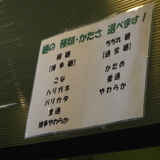 麺の 種類・かたさ 選べます！
細麺
（博多麺）
こな
ハリガネ
バリカタ
普通
博多やわらか
ちぢれ麺
（通常麺）
かため
普通
やわらか